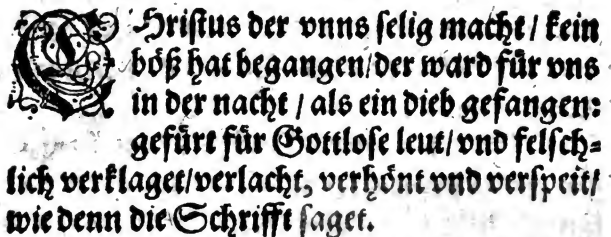 CHristus der vnns selig macht / kein
böß hat begangen / der ward für vns
in der nacht / als ein dieb gefangen:
gefürt für Gottlose leut / vnd felsch=
lich verklaget / verlacht, verhönt vnd verspeit /
wie denn die Schrifft saget.